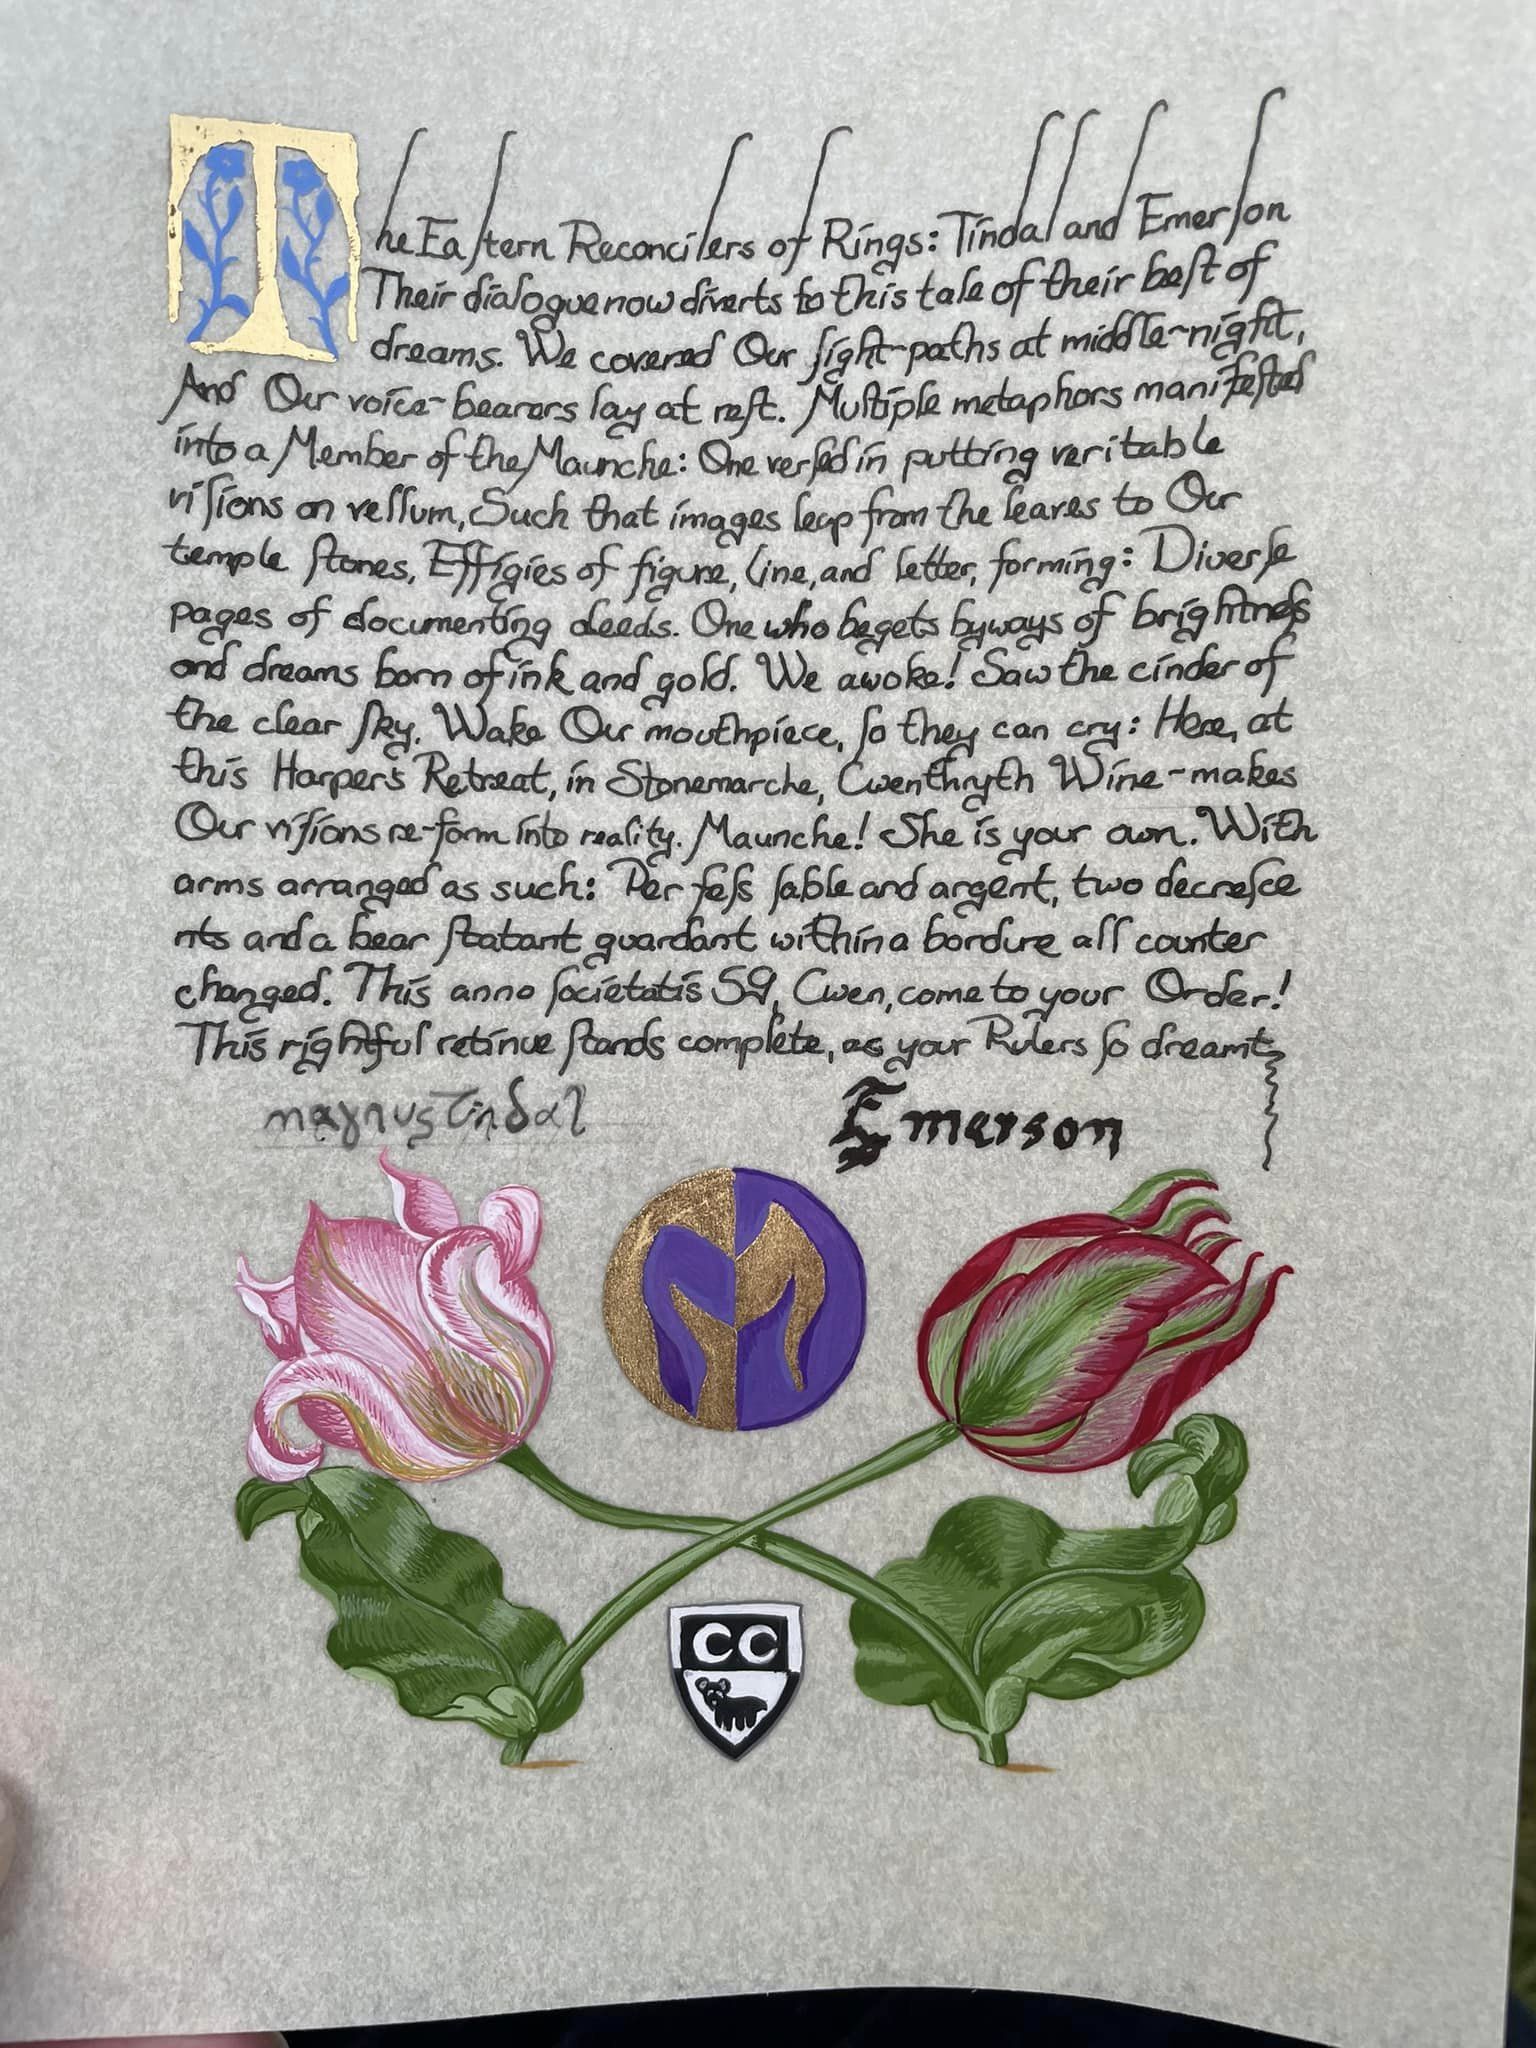 The Eaſtern Reconcilers of Rings: Tindal and Emerſon
Their dialogue now diverts to this tale of their beſt of
dreams. We covered Our ſight-paths at middle-night,
And Our voice-bearers lay at reſt. Multiple metaphors manifeſted
into a Member of the Maunche: One verſed in putting veritable
viſions on vellum, Such that images leap from the leaves to Our
temple ſtones, Effigies of figure, line, and letter, forming: Diverſe
pages of documenting deeds. One who begets byways of brightneſs
and dreams born of ink and gold. We awoke! Saw the cinder of
the clear ſky. Wake Our mouthpiece, ſo they can cry: Here, at
this Harper's Retreat, in Stonemarche, Cwenthryth Wine-makes
Our viſions re-form into reality. Maunche! She is your own. With
arms arranged as such: Per feſs ſable and argent, two decreſce
nts and a bear ſtatant guardant within a bordure all counter
changed. This anno ſocietatis 59, Cwen, come to your Order!
This rightful retinue ſtands complete, as your Rulers ſo dreamt
magnus Tindal Emerson